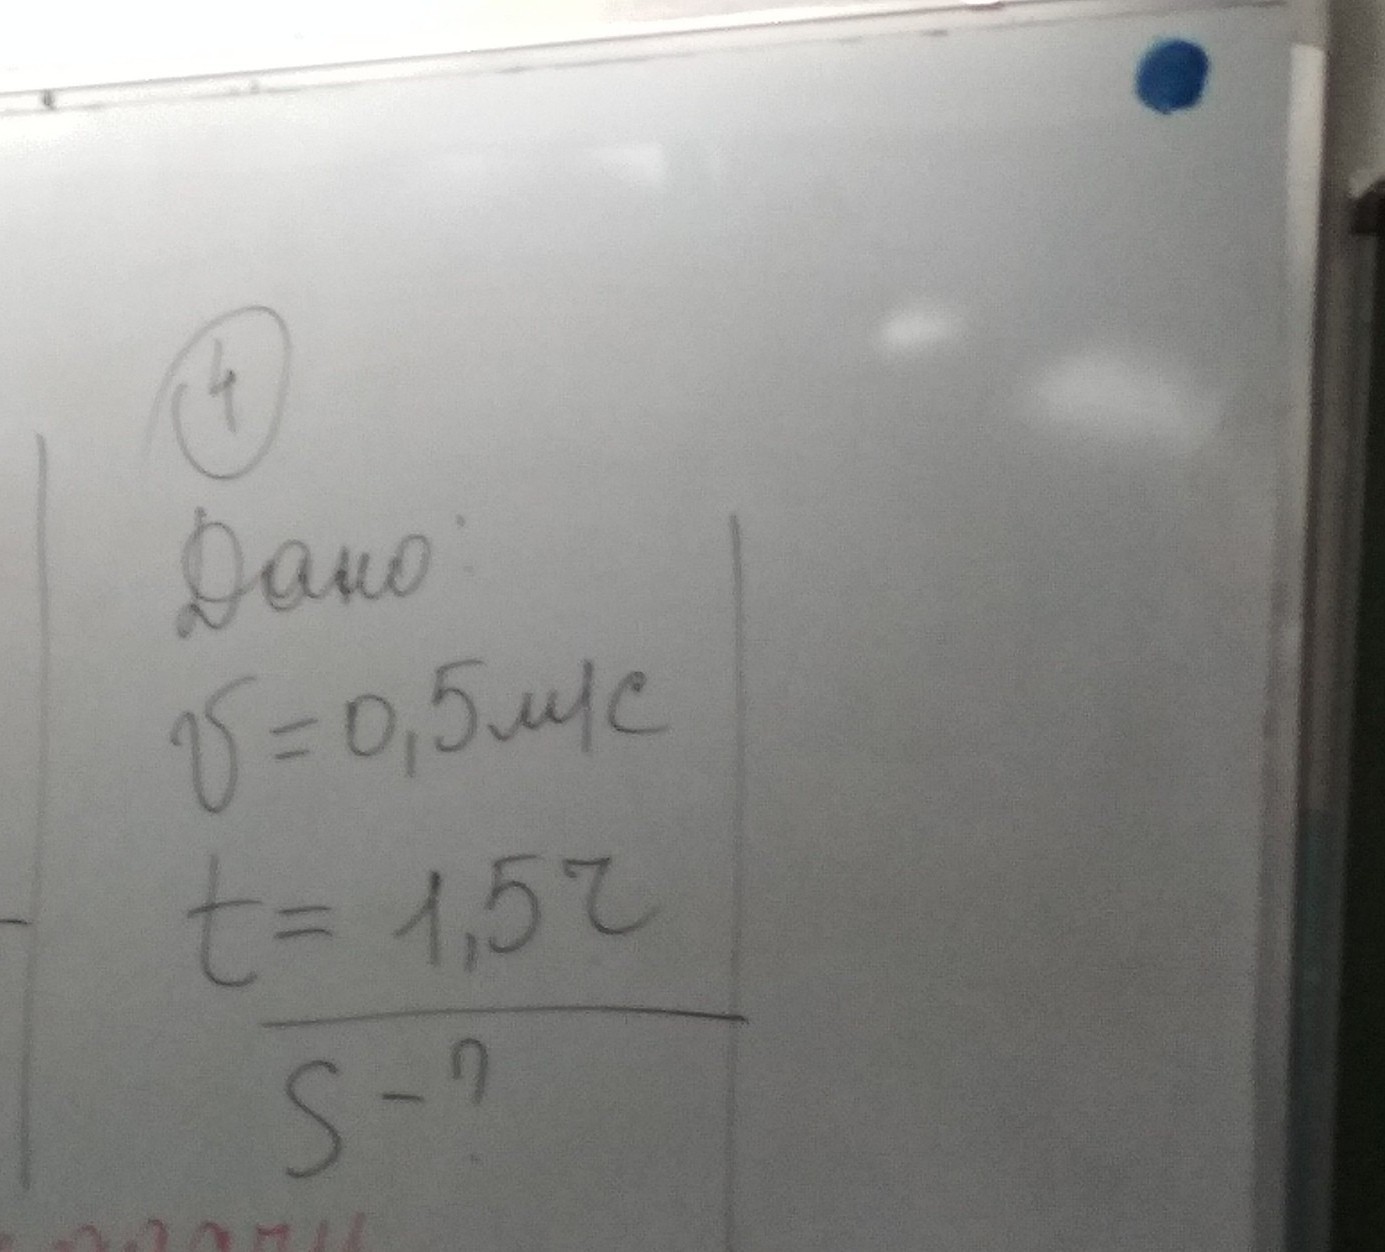 4
Дано:
v = 0,5 м/с
t = 1,5 ч
S - ?